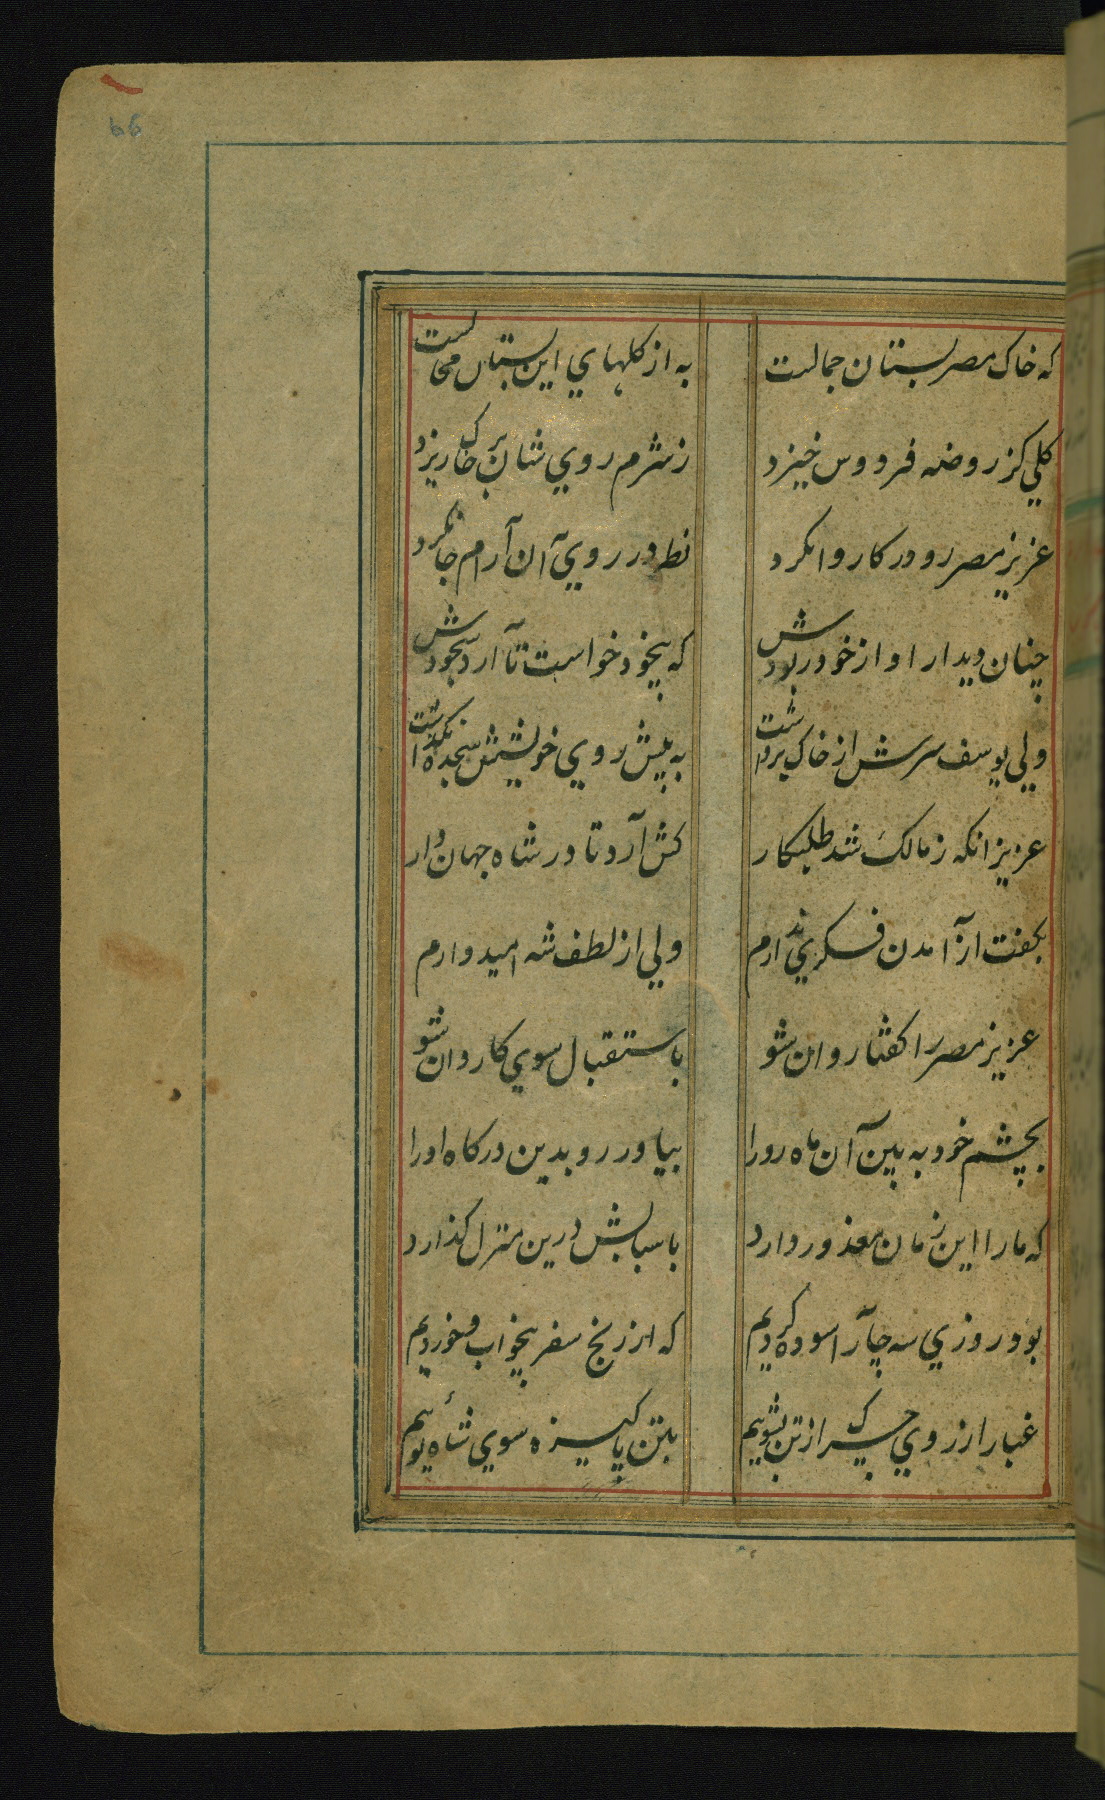 66
که خاک مصر بستان جمالست به از کلهای این بستان محالست
کلی کز روضه فردوس خیزد ز شرم روی شان بر خاک ریزد
عزیز مصر رو در کاروان کرد نظر در روی آن آرام جان کرد
چنان دیدار او از خود ربودش که بیخود خواست تا آرد سجودش
ولی یوسف سرش از خاک برداشت به پیش روی خویشش سجده نکذاشت
عزیز انکه ز مالک شد طلبکار کش آرد تا در شاه جهان دار
بکفت از آمدن فکری ندارم ولی از لطف شه امیدوارم
عزیز مصر را کفتا روان شو باستقبال سوی کاروان شو
بچشم خود به بین آن ماه رو را بیاور رو بدین درکاه او را
که ما را این زمان معذور دارد باسبابش درین منزل کذارد
بود روزی سه چار آسوده کردیم که از رنج سفر بیخواب و خوردیم
غبار از روی چرک از تن بشوییم بتن پاکیزه سوی شاه پوییم